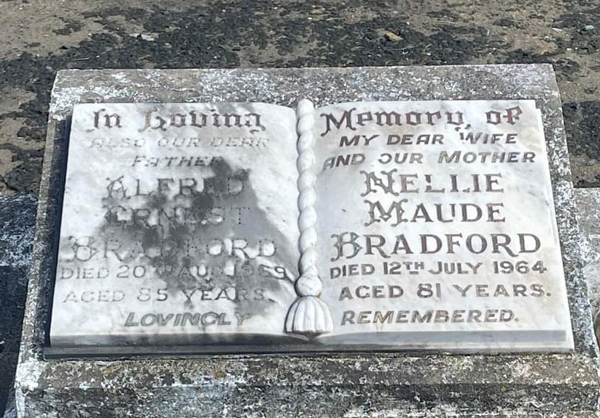 In Loving
ALSO OUR DEAR
FATHER
ALFRED
ERNEST
BRADFORD
DIED 20TH AUG. 1969
AGED 85 YEARS.
LOVINGLY
Memory of
MY DEAR WIFE
AND OUR MOTHER
NELLIE
MAUDE
BRADFORD
DIED 12TH JULY 1964
AGED 81 YEARS.
REMEMBERED.